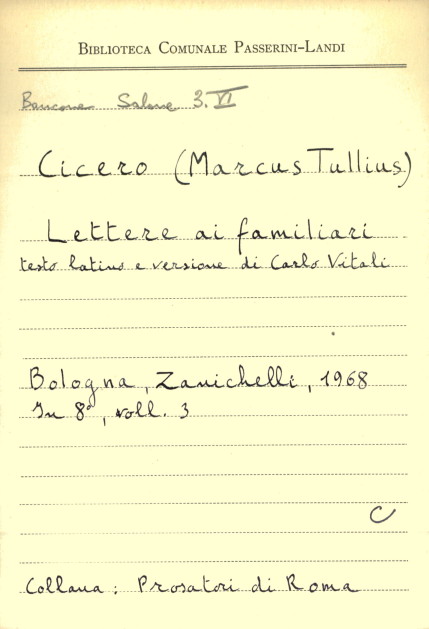 BIBLIOTECA COMUNALE PASSERINI-LANDI
Bancone Salone 3. VI
Cicero (Marcus Tullius)
Lettere ai familiari
testo latino e versione di Carlo Vitali
Bologna, Zanichelli, 1968
In 8°, voll. 3
C
Collana: Prosatori di Roma